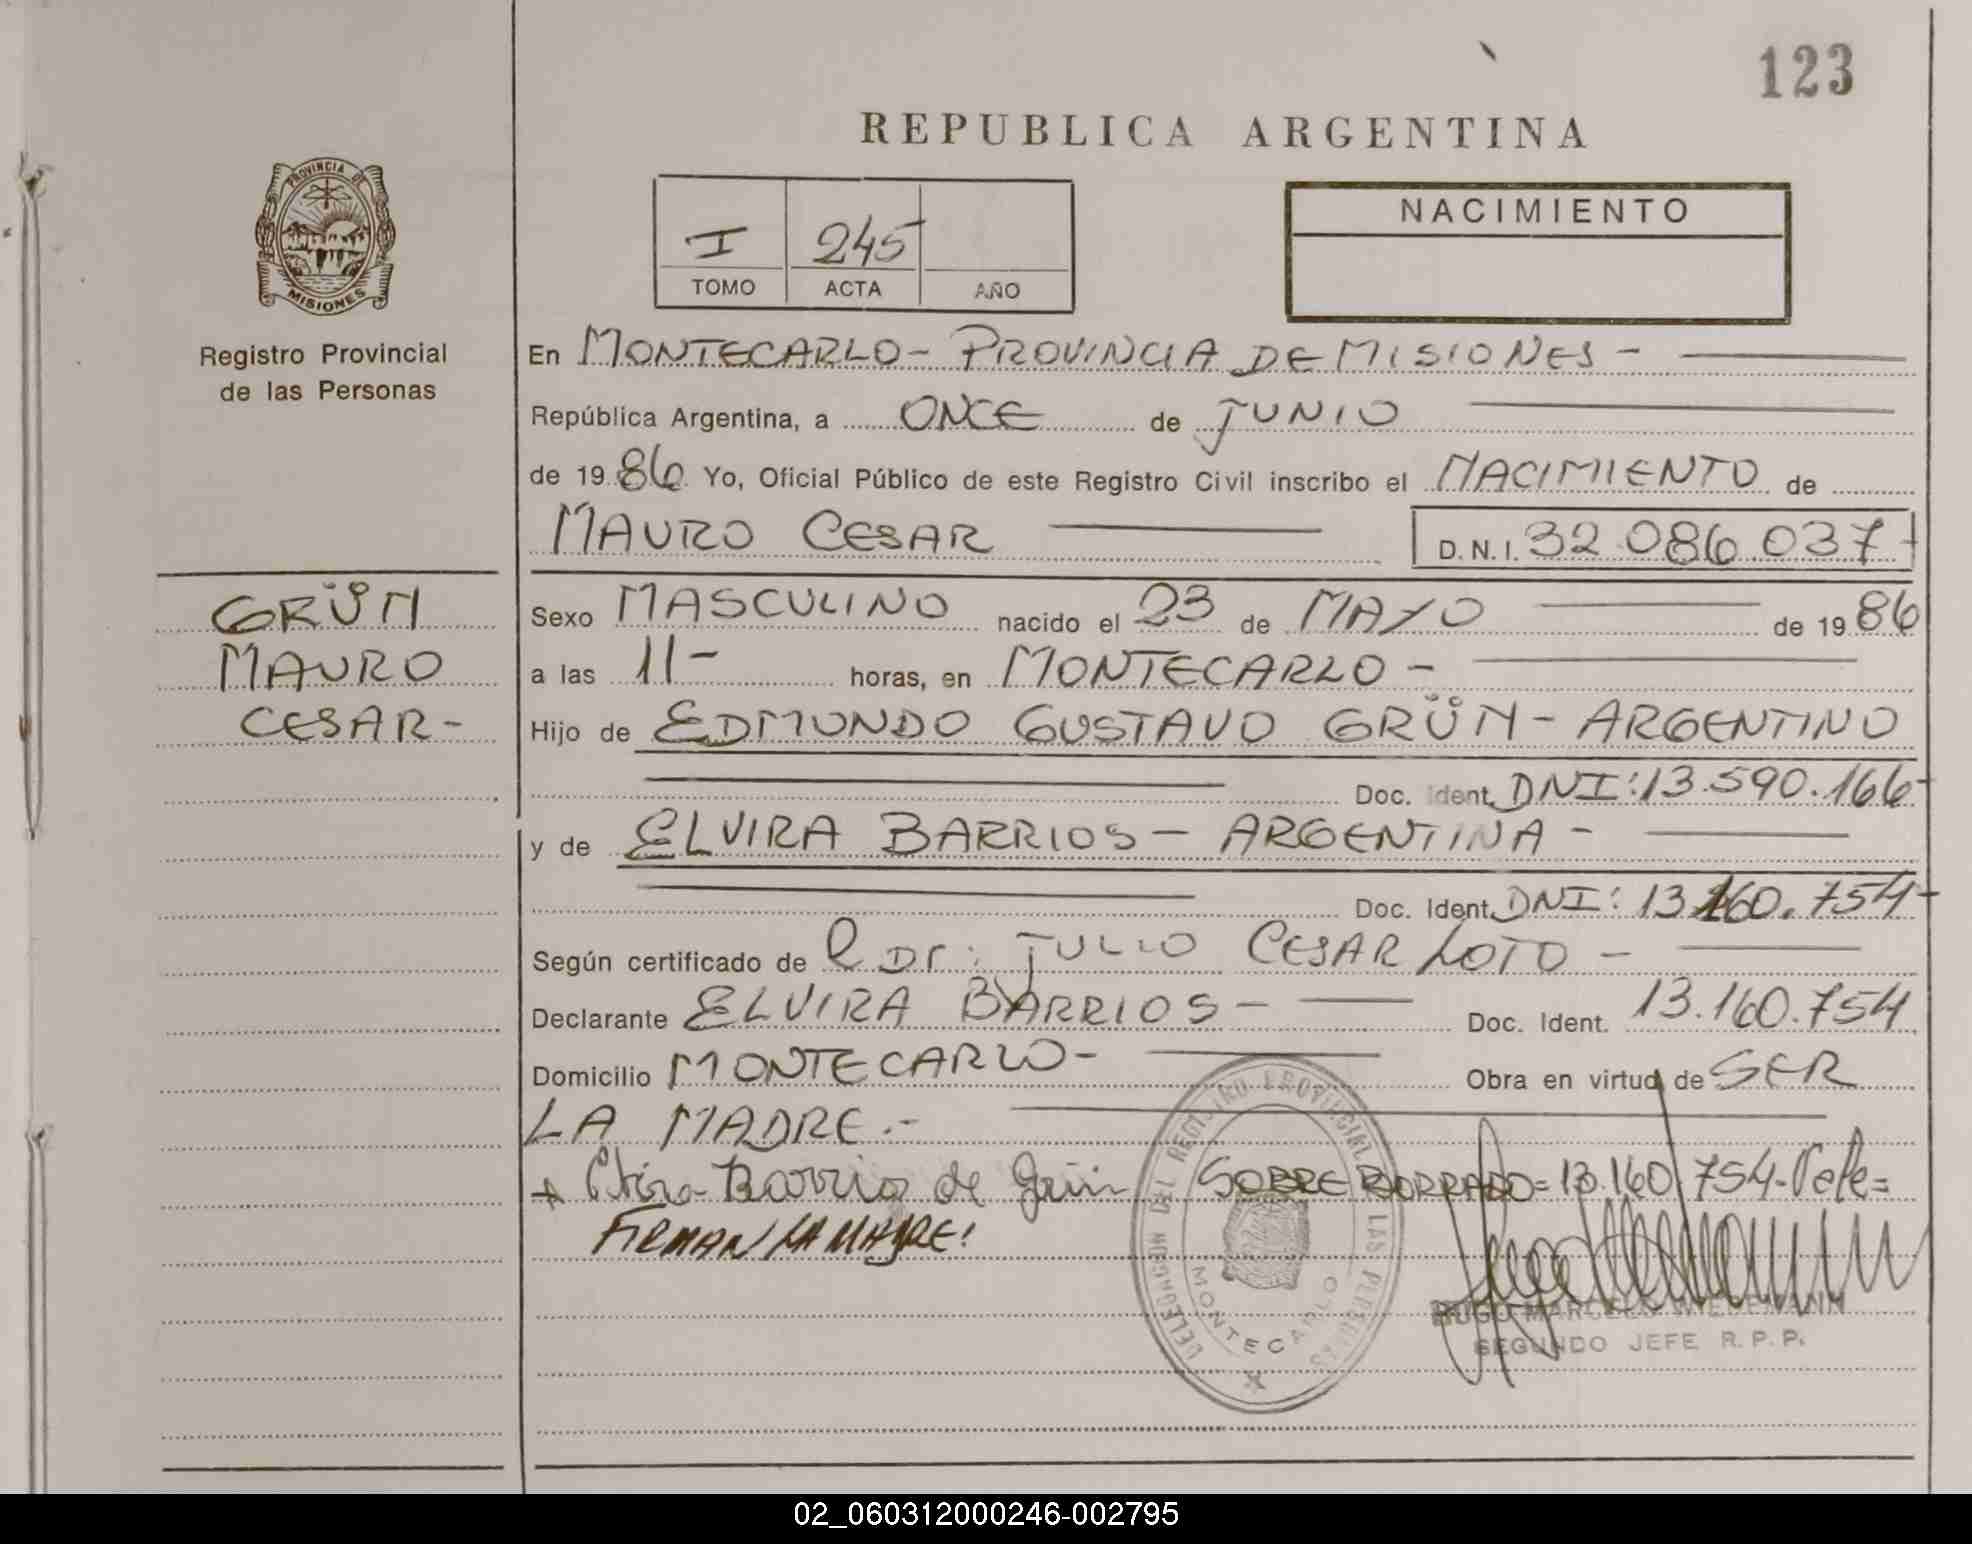 123
REPUBLICA ARGENTINA
PROVINCIA DE
MISIONES
Registro Provincial
de las Personas
I 245
TOMO ACTA AÑO
NACIMIENTO
En MONTECARLO- PROVINCIA DE MISIONES -
República Argentina, a ONCE de JUNIO
de 1986 Yo, Oficial Público de este Registro Civil inscribo el NACIMIENTO de
MAURO CESAR D.N.I. 32 086 037-
GRÜN
MAURO
CESAR-
Sexo MASCULINO nacido el 23 de MAYO de 1986
a las 11- horas, en MONTECARLO -
Hijo de EDMUNDO GUSTAVO GRÜN - ARGENTINO
Doc. Ident. DNI: 13.590.166-
y de ELVIRA BARRIOS - ARGENTINA -
Doc. Ident. DNI: 13 160.754-
Según certificado de Dr: JULIO CESAR LOTO -
Declarante ELVIRA BARRIOS - Doc. Ident. 13.160.754
Domicilio MONTECARLO- Obra en virtud de SER
LA MADRE.-
Barrios de Grün SOBRE BORRADO= 13.160.754- Vale=
FIRMAN LA MADRE!
DELEGACION DEL REGISTRO PROVINCIAL DE LAS PERSONAS
MONTECARLO
HUGO MARCELO WIEDEMANN
SEGUNDO JEFE R.P.P.
02_060312000246-002795